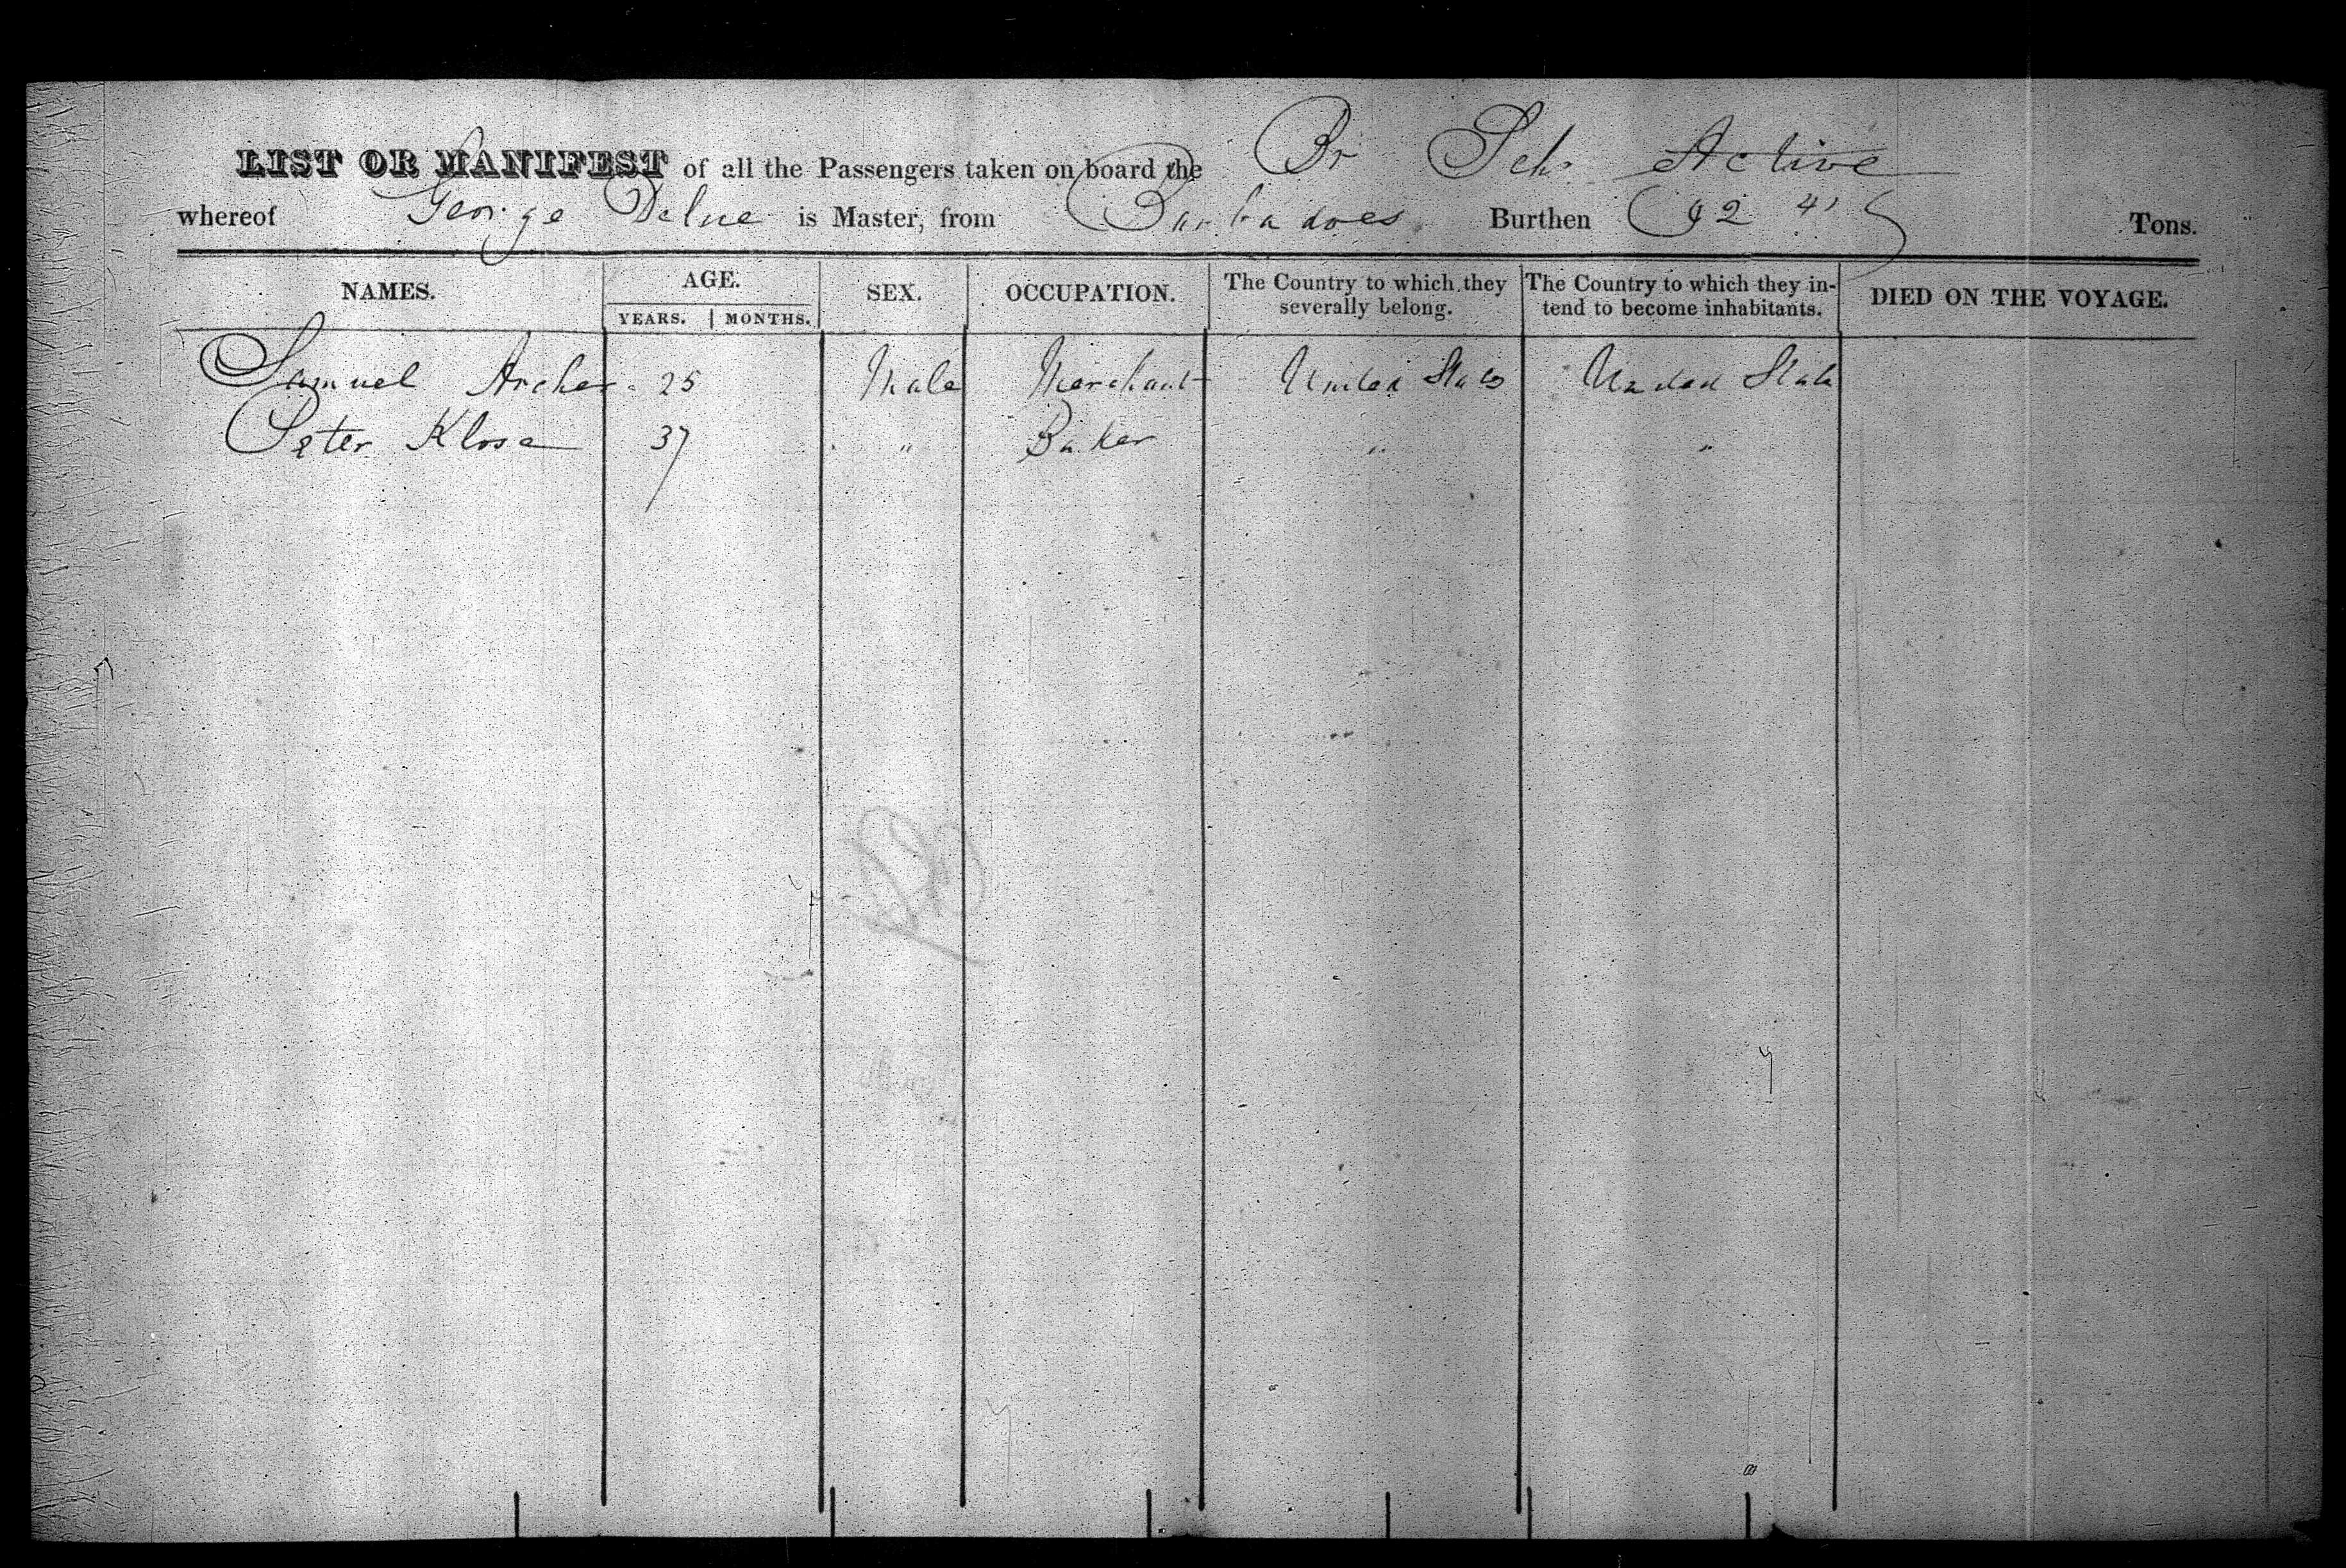 LIST OR MANIFEST of all the Passengers taken on board the Br Schr Active
whereof George is Master, from Barbadoes Burthen 92 Tons.
NAMES. AGE. SEX. OCCUPATION. The Country to which they severally belong. The Country to which they intend to become inhabitants. DIED ON THE VOYAGE.
YEARS. MONTHS.
Samuel Archer 25 Male Merchant United States United States
Peter Klose 37 " Baker " "